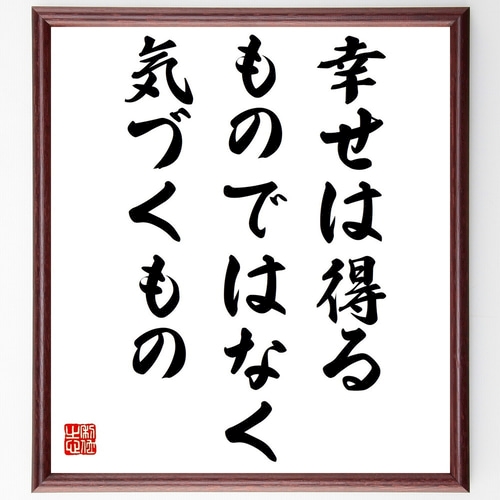 幸せは得る
ものではなく
気づくもの